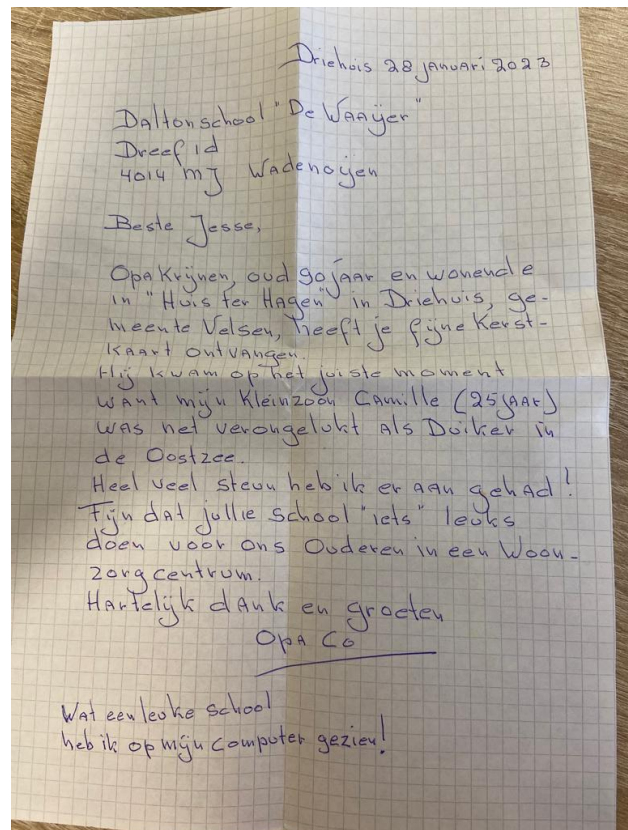 Driehuis 28 januari 2023
Daltonschool "De Waaijer"
Dreef 1d
4014 MJ Wadenoijen
Beste Jesse,
Opa Krijnen, oud 90 jaar en wonende
in "Huis ter Hagen" in Driehuis, ge-
meente Velsen, heeft je fijne Kerst-
kaart ontvangen.
Hij kwam op het juiste moment
want mijn Kleinzoon Camille (25 jaar)
was net verongelukt als Duiker in
de Oostzee.
Heel veel steun heb ik er aan gehad!
Fijn dat jullie school "iets" leuks
doen voor ons Ouderen in een Woon-
zorgcentrum.
Hartelijk dank en groeten
Opa Co
Wat een leuke school
heb ik op mijn computer gezien!